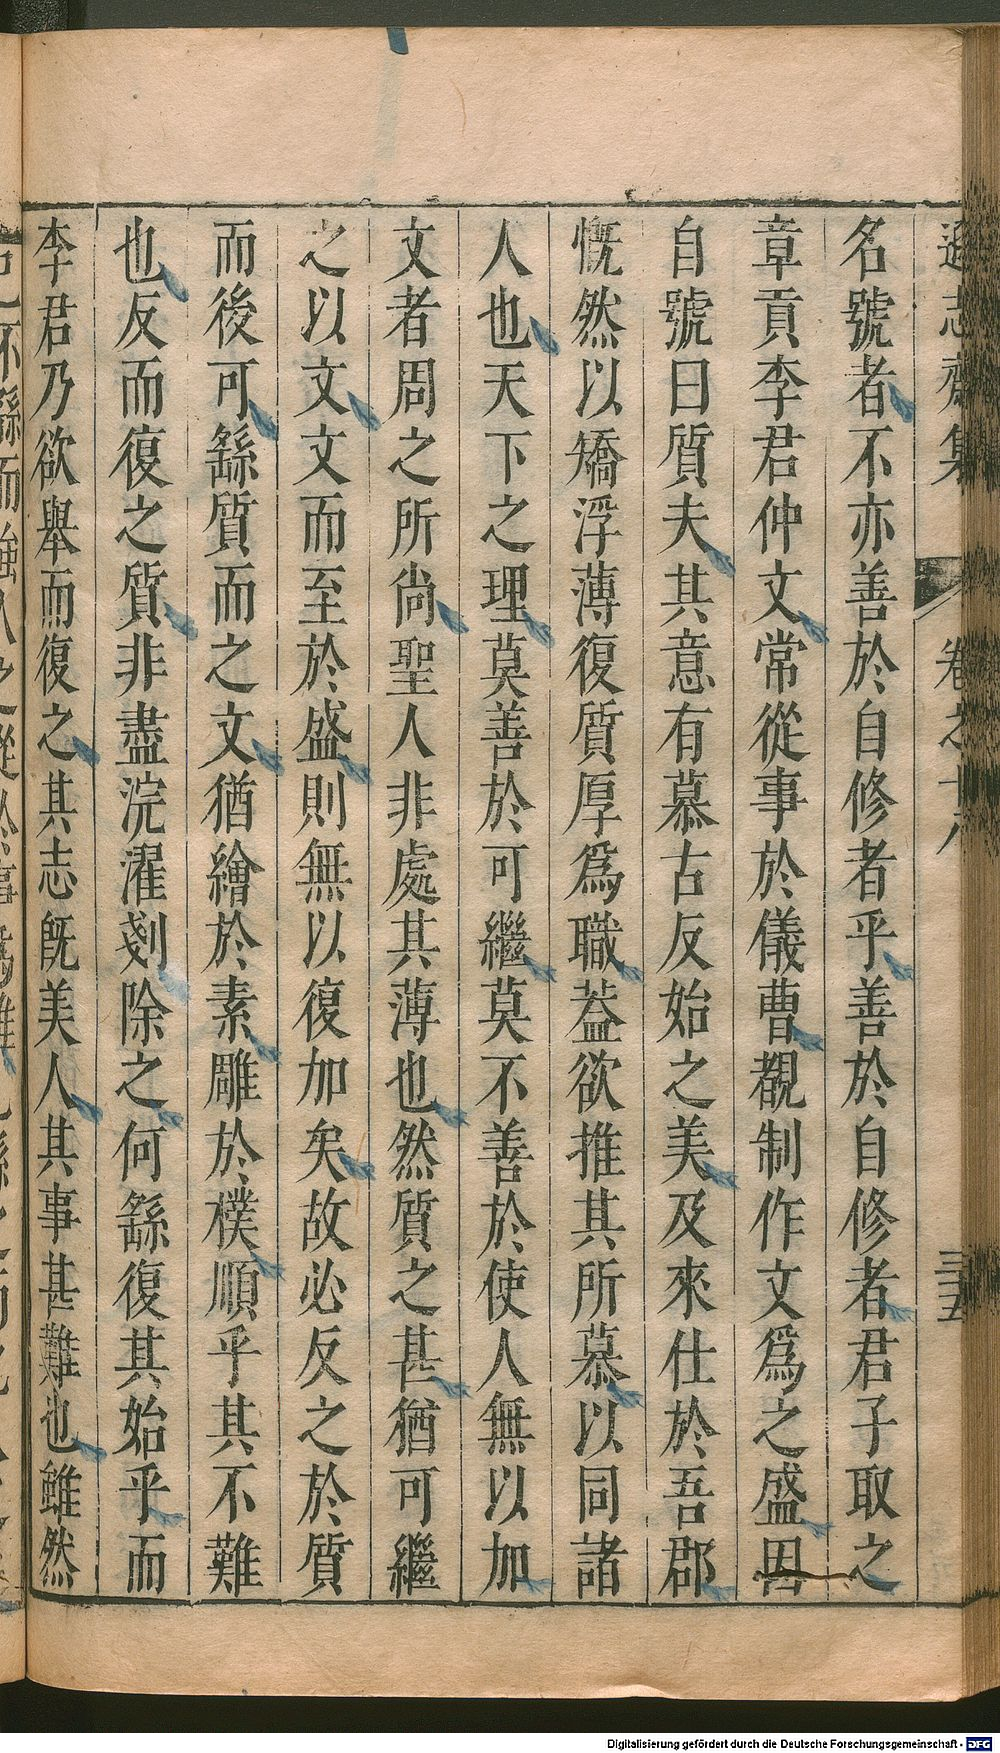 遜志齋集 卷之十八 三五
名號者不亦善於自修者乎善於自修者君子取之
章貢李君仲文常從事於儀曹覩制作文爲之盛因
自號曰質夫其意有慕古反始之美及來仕於吾郡
慨然以矯浮薄復質厚爲職葢欲推其所慕以同諸
人也天下之理莫善於可繼莫不善於使人無以加
文者周之所尙聖人非處其薄也然質之甚猶可繼
之以文文而至於盛則無以復加矣故必反之於質
而後可繇質而之文猶繪於素雕於樸順乎其不難
也反而復之質非盡浣濯剗除之何繇復其始乎而
李君乃欲舉而復之其志旣美人其事甚難也雖然
Digitalisierung gefördert durch die Deutsche Forschungsgemeinschaft - DFG